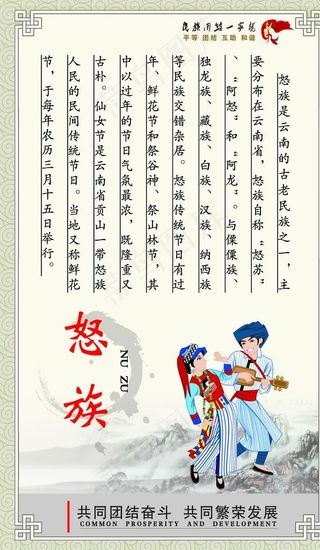 民族团结一家亲
平等 团结 互助 和谐
怒族是云南的古老民族之一，主
要分布在云南省，怒族自称“怒苏”
、“阿怒”和“阿龙”。与傈僳族、
独龙族、藏族、白族、汉族、纳西族
等民族交错杂居。怒族传统节日有过
年、鲜花节和祭谷神、祭山林节，其
中以过年的节日气氛最浓，既隆重又
古朴。仙女节是云南省贡山一带怒族
人民的民间传统节日。当地又称鲜花
节，于每年农历三月十五日举行。
怒族
NU ZU
共同团结奋斗 共同繁荣发展
COMMON PROSPERITY AND DEVELOPMENT